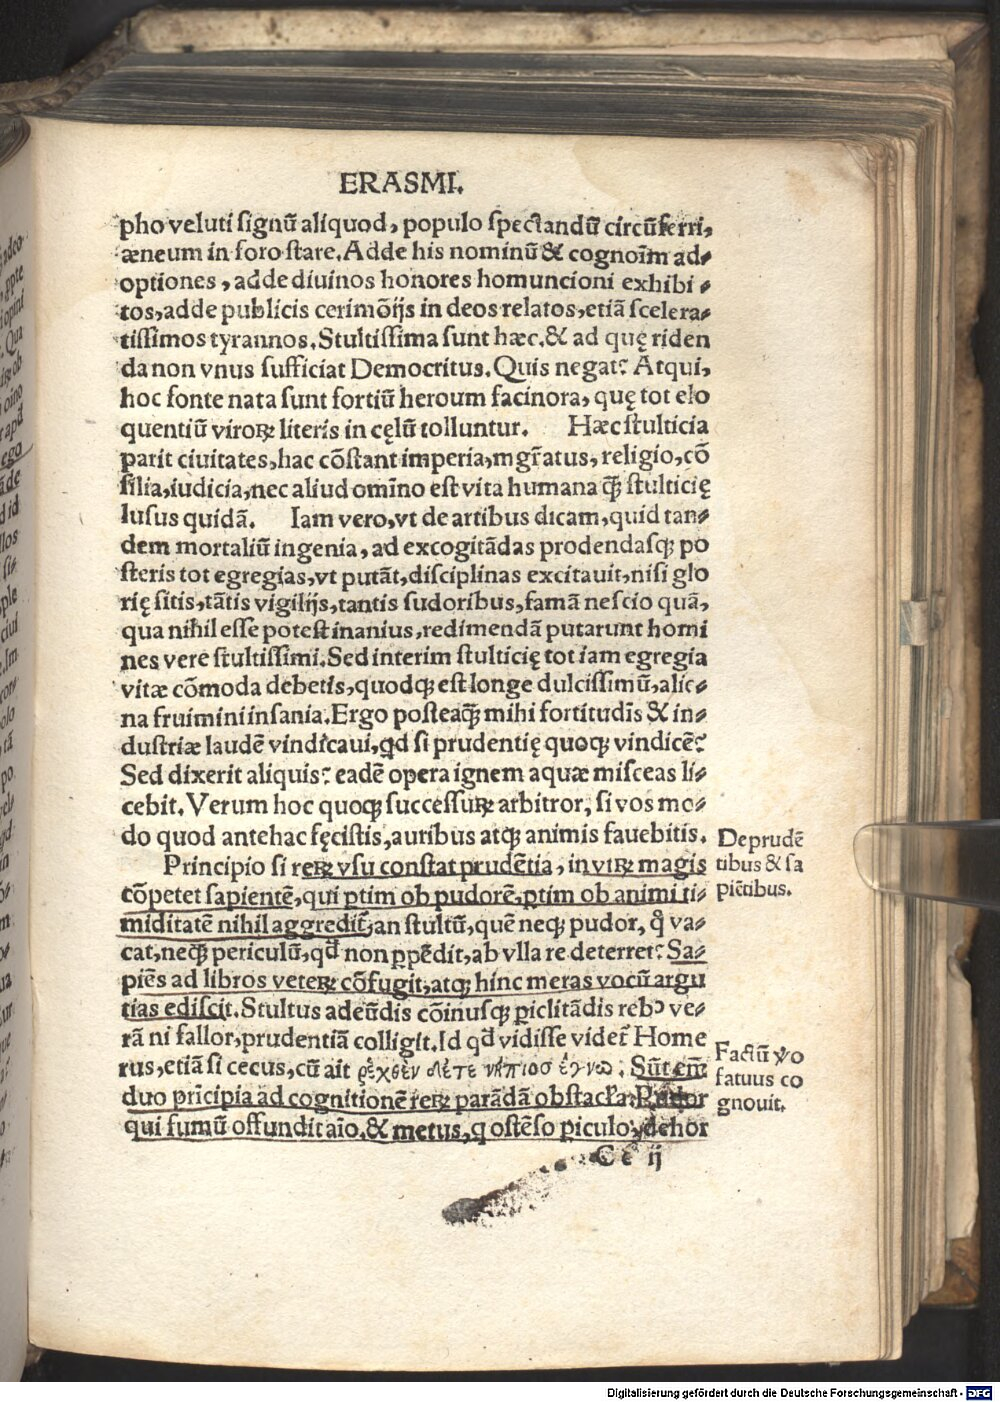 ERASMI.
pho veluti signũ aliquod, populo spectandũ circũferri,
æneum in foro stare. Adde his nominũ & cognoĩm ad⸗
optiones, adde diuinos honores homuncioni exhibi⸗
tos, adde publicis cerimõijs in deos relatos, etiã scelera⸗
tissimos tyrannos. Stultissima sunt hæc. & ad quę riden
da non vnus sufficiat Democritus. Quis negat? Atqui,
hoc fonte nata sunt fortiũ heroum facinora, quę tot elo
quentiũ viroꝝ literis in cęlũ tolluntur. Hæc stulticia
parit ciuitates, hac cõstant imperia, mgr̃atus, religio, cõ
silia, iudicia, nec aliud omĩno est vita humana ꝙ̃ stulticię
lusus quidã. Iam vero, vt de artibus dicam, quid tan⸗
dem mortaliũ ingenia, ad excogitãdas prodendasqꝫ po
steris tot egregias, vt putãt, disciplinas excitauit, nisi glo
rię sitis, tãtis vigilijs, tantis sudoribus, famã nescio quã,
qua nihil esse potest inanius, redimendã putarunt homi
nes vere stultissimi. Sed interim stulticię tot iam egregia
vitæ cõmoda debetis, quodqꝫ est longe dulcissimũ, alie⸗
na fruimini insania. Ergo posteaꝙ̃ mihi fortitudĩs & in⸗
dustriæ laudẽ vindicaui, qd si prudentię quoqꝫ vindicẽ?
Sed dixerit aliquis? eadẽ opera ignem aquæ misceas li⸗
cebit. Verum hoc quoqꝫ successuꝝ arbitror, si vos mo⸗
do quod antehac fęcistis, auribus atqꝫ animis fauebitis.
Principio si reꝝ vsu constat prudẽtia, in vtꝝ magis
cõpetet sapientẽ, qui ꝑtim ob pudorẽ, ꝑtim ob animi ti⸗
miditatẽ nihil aggredit᷑, an stultũ, quẽ neqꝫ pudor, q̃ va⸗
cat, neqꝫ periculũ, qd̃ non ꝑpẽdit, ab vlla re deterret? Sa⸗
piẽs ad libros veteꝝ cõfugit, atqꝫ hinc meras vocũ argu
tias ediscit. Stultus adeũdis cõinusqꝫ ꝑiclitãdis rebꝰ ve⸗
rã ni fallor, prudentiã colligit. Id qd̃ vidisse videt᷑ Home
rus, etiã si cecus, cũ ait ῥεχθὲν δέτε νήπιοσ ἔγνω. Sũt em̃
duo prĩcipia ad cognitionẽ reꝝ parãdã obstacl̃a. Pudor
qui fumũ offundit aĩo. & metus, q ostẽso ꝑiculo, dehor
Cc ij
De prudẽ
tibus & sa
piẽtibus.
Factũ vo
fatuus co
gnouit.